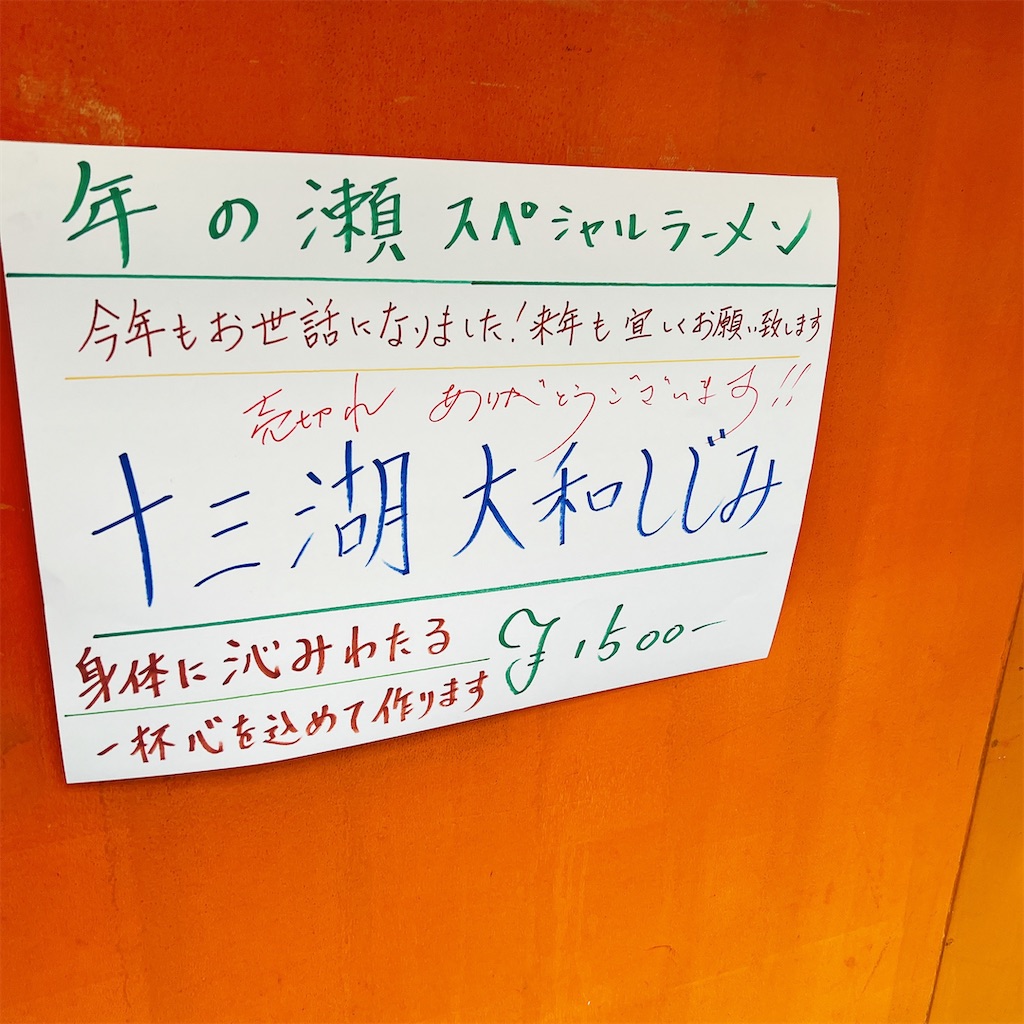 年の瀬スペシャルラーメン
今年もお世話になりました!来年も宜しくお願い致します
売切れ ありがとうございます!!
十三湖 大和しじみ
身体に沁みわたる
¥1500-
一杯心を込めて作ります